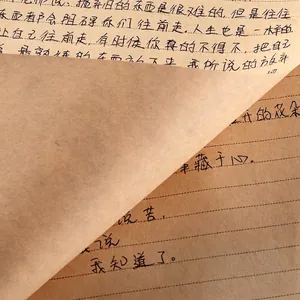 抛弃旧的东西是很难的,但是往往
东西都会阻碍你们往前走,人生也是一
让自己往前走,有时候你真的不得不把自己
的东西放下来,我所说的放弃
的花朵
藏于心。
说苦,
说
我知道了。